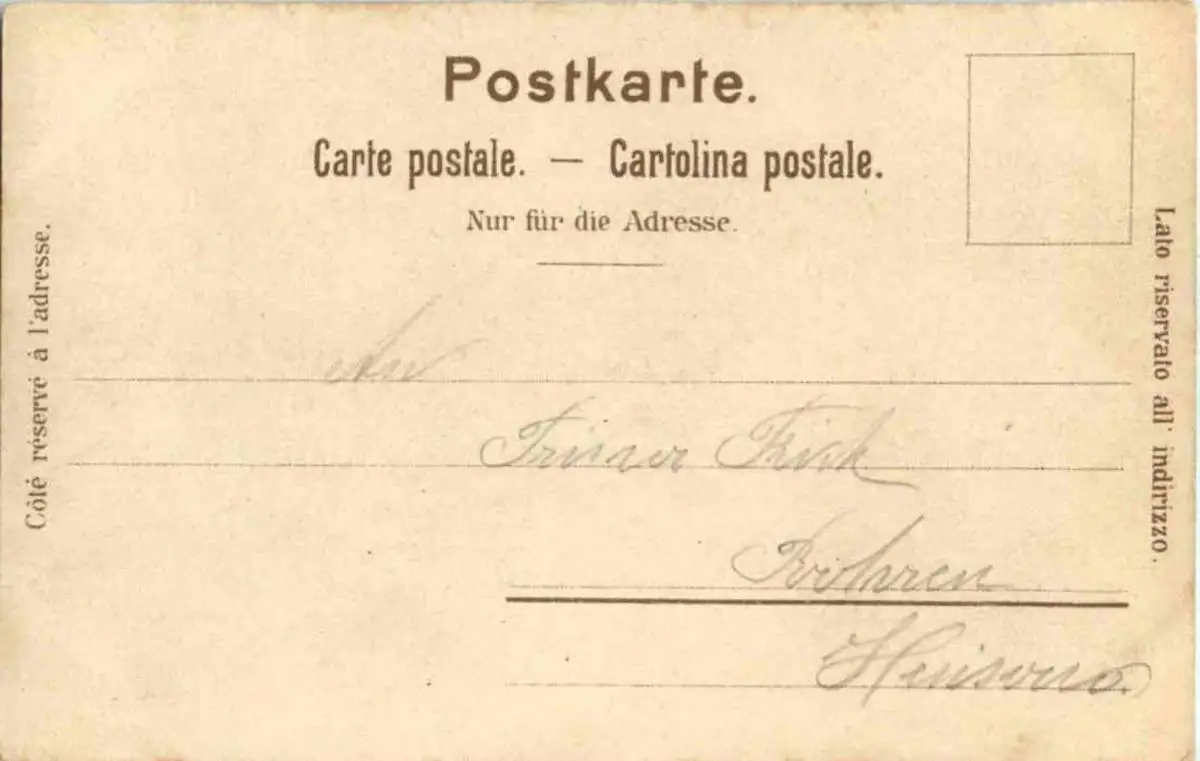 Postkarte.
Carte postale. — Cartolina postale.
Nur für die Adresse.
Côté réservé à l'adresse.
Lato riservato all' indirizzo.
An